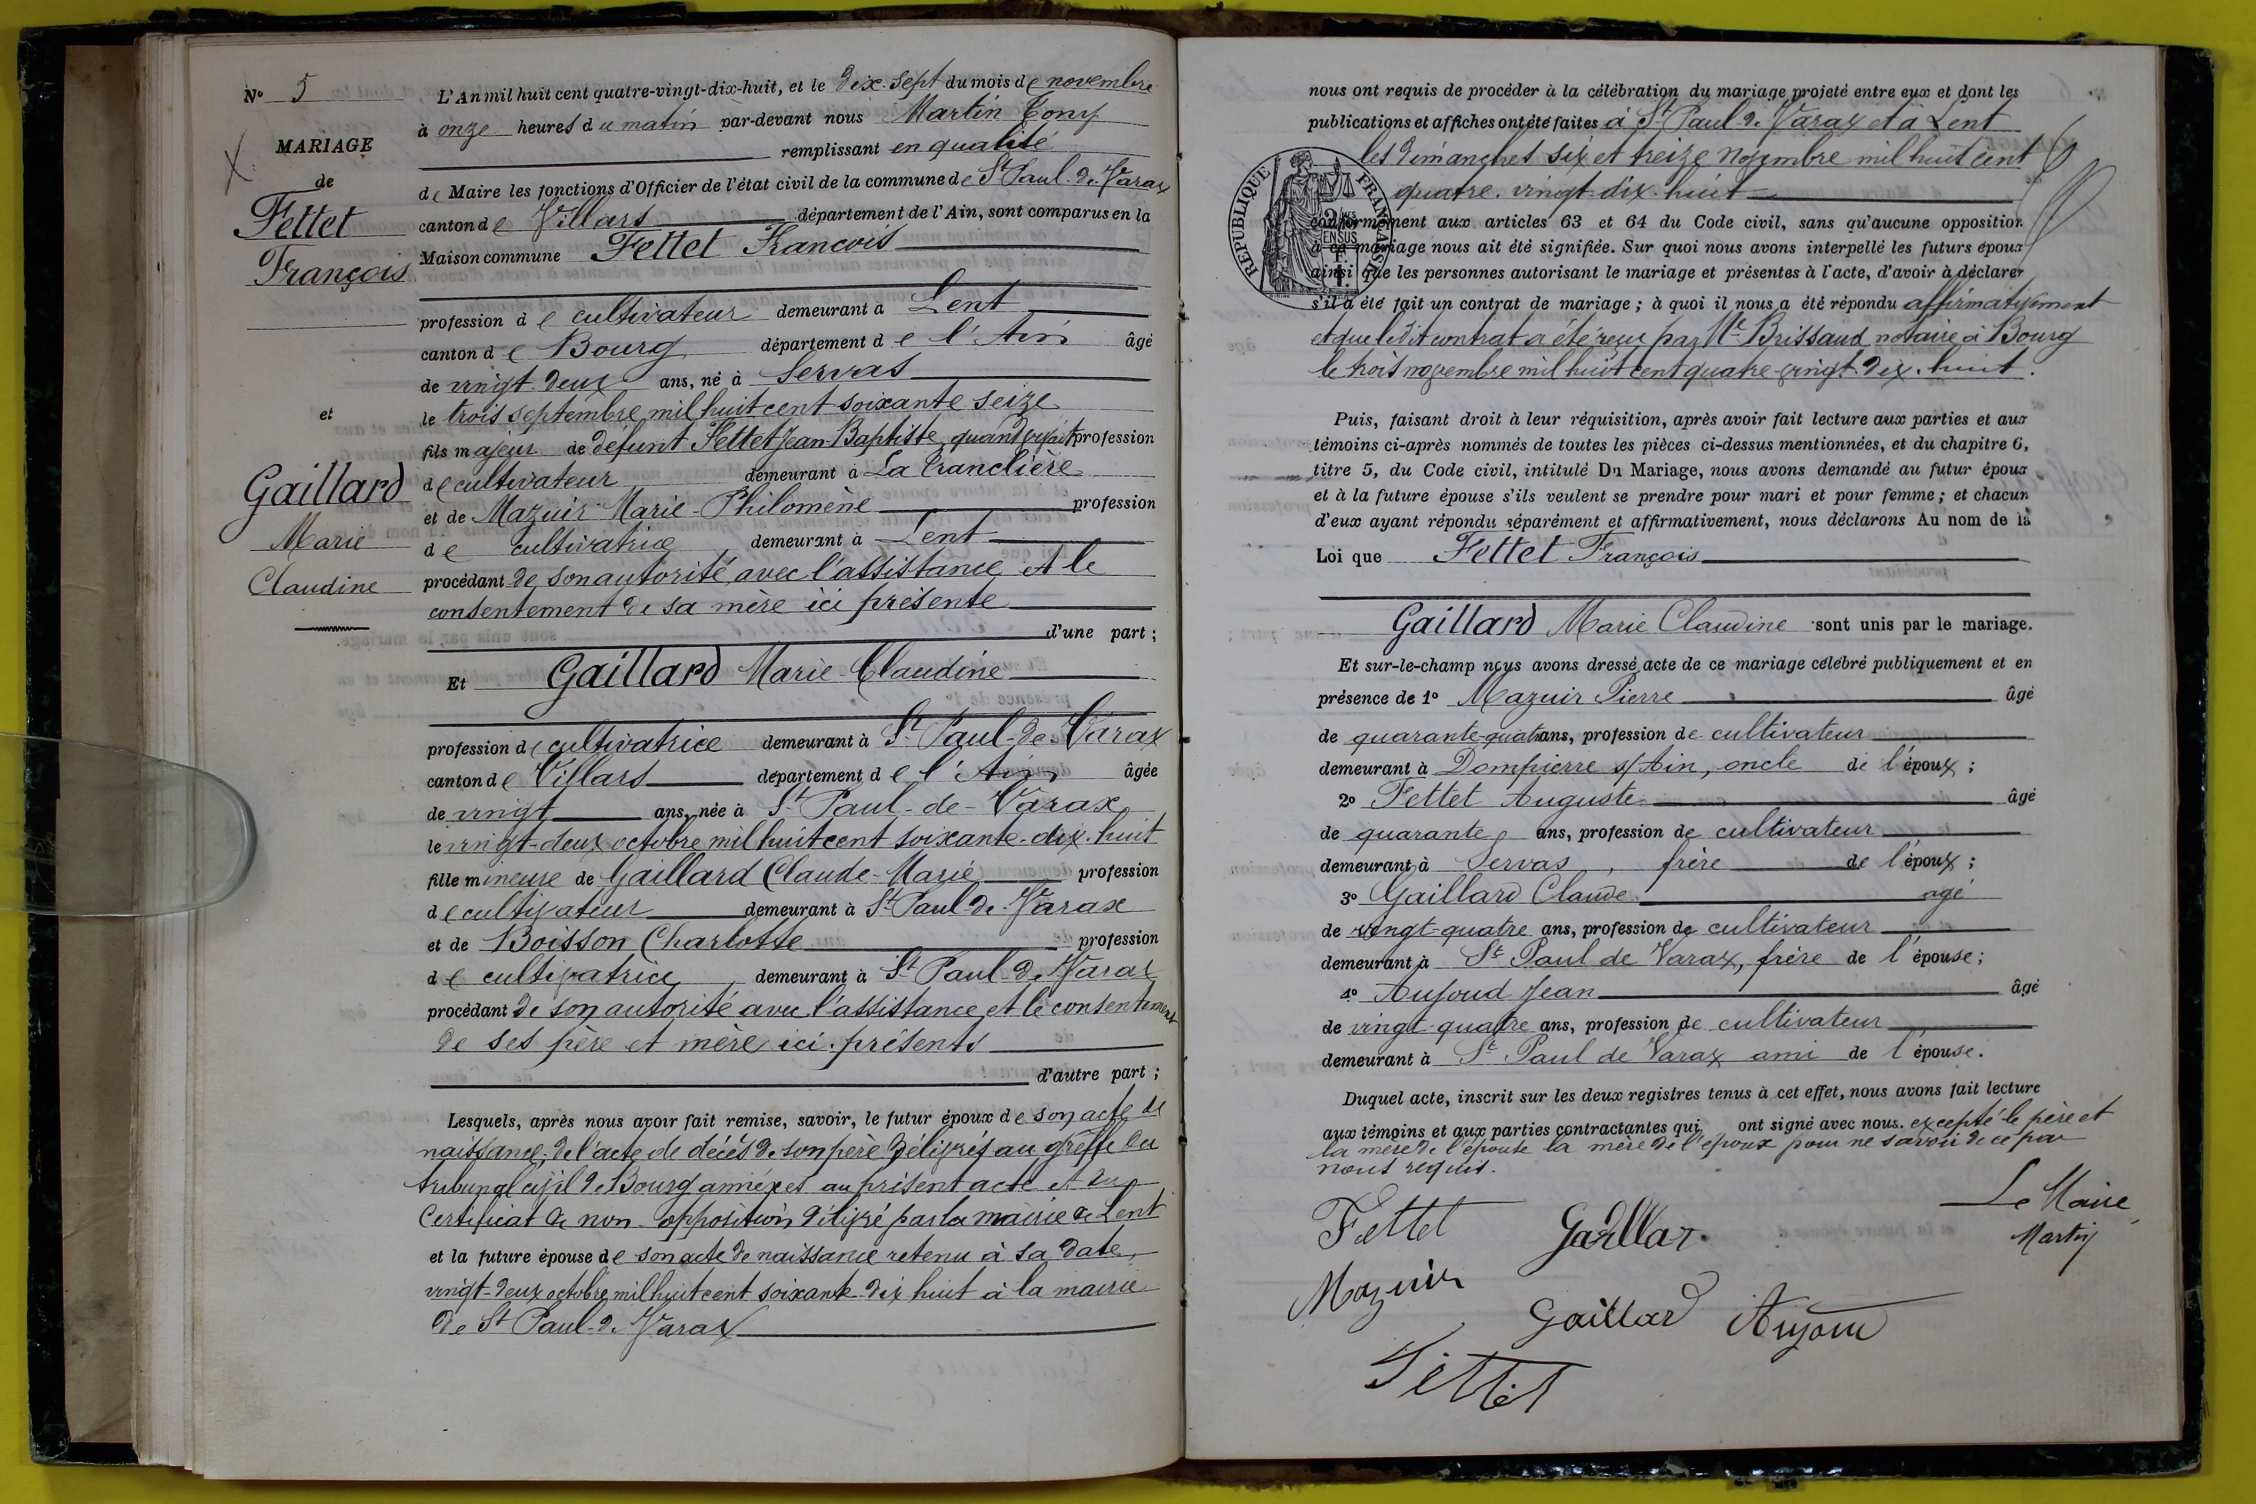 N° 5
MARIAGE
de
Fettet
François
et
Gaillard
Marie
Claudine
L'An mil huit cent quatre-vingt-dix-huit, et le dix-sept du mois de novembre
à onze heures du matin par-devant nous Martin Tony
remplissant en qualité
de Maire les fonctions d'Officier de l'état civil de la commune de St Paul-de-Varax
canton de Villars département de l'Ain, sont comparus en la
Maison commune Fettet François
profession de cultivateur demeurant à Lent
canton de Bourg département de l'Ain âgé
de vingt-deux ans, né à Servas
le trois septembre mil huit cent soixante seize
fils majeur de défunt Fettet Jean-Baptiste, quand vivait profession
de cultivateur demeurant à La Tranclière
et de Mazuir Marie-Philomène profession
de cultivatrice demeurant à Lent
procédant de son autorité avec l'assistance et le
consentement de sa mère ici présente
d'une part ;
Et Gaillard Marie Claudine
profession de cultivatrice demeurant à St Paul-de-Varax
canton de Villars département de l'Ain âgée
de vingt ans, née à St Paul-de-Varax
le vingt-deux octobre mil huit cent soixante-dix-huit
fille mineure de Gaillard Claude-Marie profession
de cultivateur demeurant à St Paul-de-Varax
et de Boisson Charlotte profession
de cultivatrice demeurant à St Paul-de-Varax
procédant de son autorité avec l'assistance et le consentement
de ses père et mère ici présents
d'autre part ;
Lesquels, après nous avoir fait remise, savoir, le futur époux de son acte de
naissance, de l'acte de décès de son père délivrés au greffe du
tribunal civil de Bourg annéxes au présent acte et du
Certificat de non opposition délivré par la mairie de Lent
et la future épouse de son acte de naissance retenu à sa date
vingt-deux octobre mil huit cent soixante-dix huit à la mairie
de St Paul-de-Varax
nous ont requis de procéder à la célébration du mariage projeté entre eux et dont les
publications et affiches ont été faites à St Paul-de-Varax et à Lent
les dimanches six et treize novembre mil huit cent
quatre-vingt-dix-huit
RÉPUBLIQUE FRANÇAISE
conformément aux articles 63 et 64 du Code civil, sans qu'aucune opposition
à ce mariage nous ait été signifiée. Sur quoi nous avons interpellé les futurs époux
ainsi que les personnes autorisant le mariage et présentes à l'acte, d'avoir à déclarer
s'il a été fait un contrat de mariage ; à quoi il nous a été répondu affirmativement
et que ledit contrat a été reçu par Me Brissaud notaire à Bourg
le trois novembre mil huit cent quatre-vingt-dix-huit.
Puis, faisant droit à leur réquisition, après avoir fait lecture aux parties et aux
témoins ci-après nommés de toutes les pièces ci-dessus mentionnées, et du chapitre 6,
titre 5, du Code civil, intitulé Du Mariage, nous avons demandé au futur époux
et à la future épouse s'ils veulent se prendre pour mari et pour femme ; et chacun
d'eux ayant répondu séparément et affirmativement, nous déclarons Au nom de la
Loi que Fettet François
Gaillard Marie Claudine sont unis par le mariage.
Et sur-le-champ nous avons dressé acte de ce mariage célébré publiquement et en
présence de 1° Mazuir Pierre âgé
de quarante-quatre ans, profession de cultivateur
demeurant à Dompierre s/Ain, oncle de l'époux ;
2° Fettet Auguste âgé
de quarante ans, profession de cultivateur
demeurant à Servas, frère de l'époux ;
3° Gaillard Claude agé
de vingt-quatre ans, profession de cultivateur
demeurant à St Paul de Varax, frère de l'épouse ;
4° Aujoud Jean âgé
de vingt-quatre ans, profession de cultivateur
demeurant à St Paul de Varax ami de l'épouse.
Duquel acte, inscrit sur les deux registres tenus à cet effet, nous avons fait lecture
aux témoins et aux parties contractantes qui ont signé avec nous. excepté le père et
la mère de l'épouse la mère de l'époux pour ne savoir de ce par
nous requis.
Fettet Gaillar Le Maire
Martin
Mazuir
Gaillard Aujou
Fettet